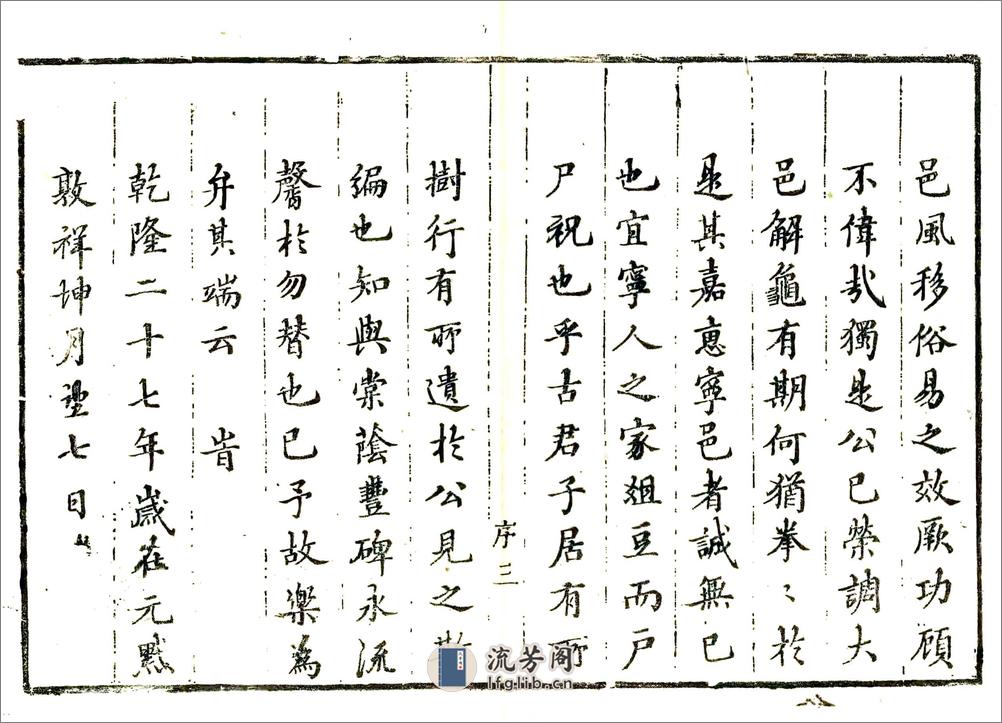 邑風移俗易之效厥功顧
不偉哉獨是公已榮調大
邑解龜有期何猶拳〻於
是其嘉惠寧邑者誠無已
也宜寧人之家俎豆而戶
尸祝也乎古君子居有所
序三
樹行有所遺於公見之
編也知與棠蔭豐碑永流
馨於勿替也已予故樂為
弁其端云 旹
乾隆二十七年歲在元黓
敦祥坤月望七日
流芳阁
lfglib.cn